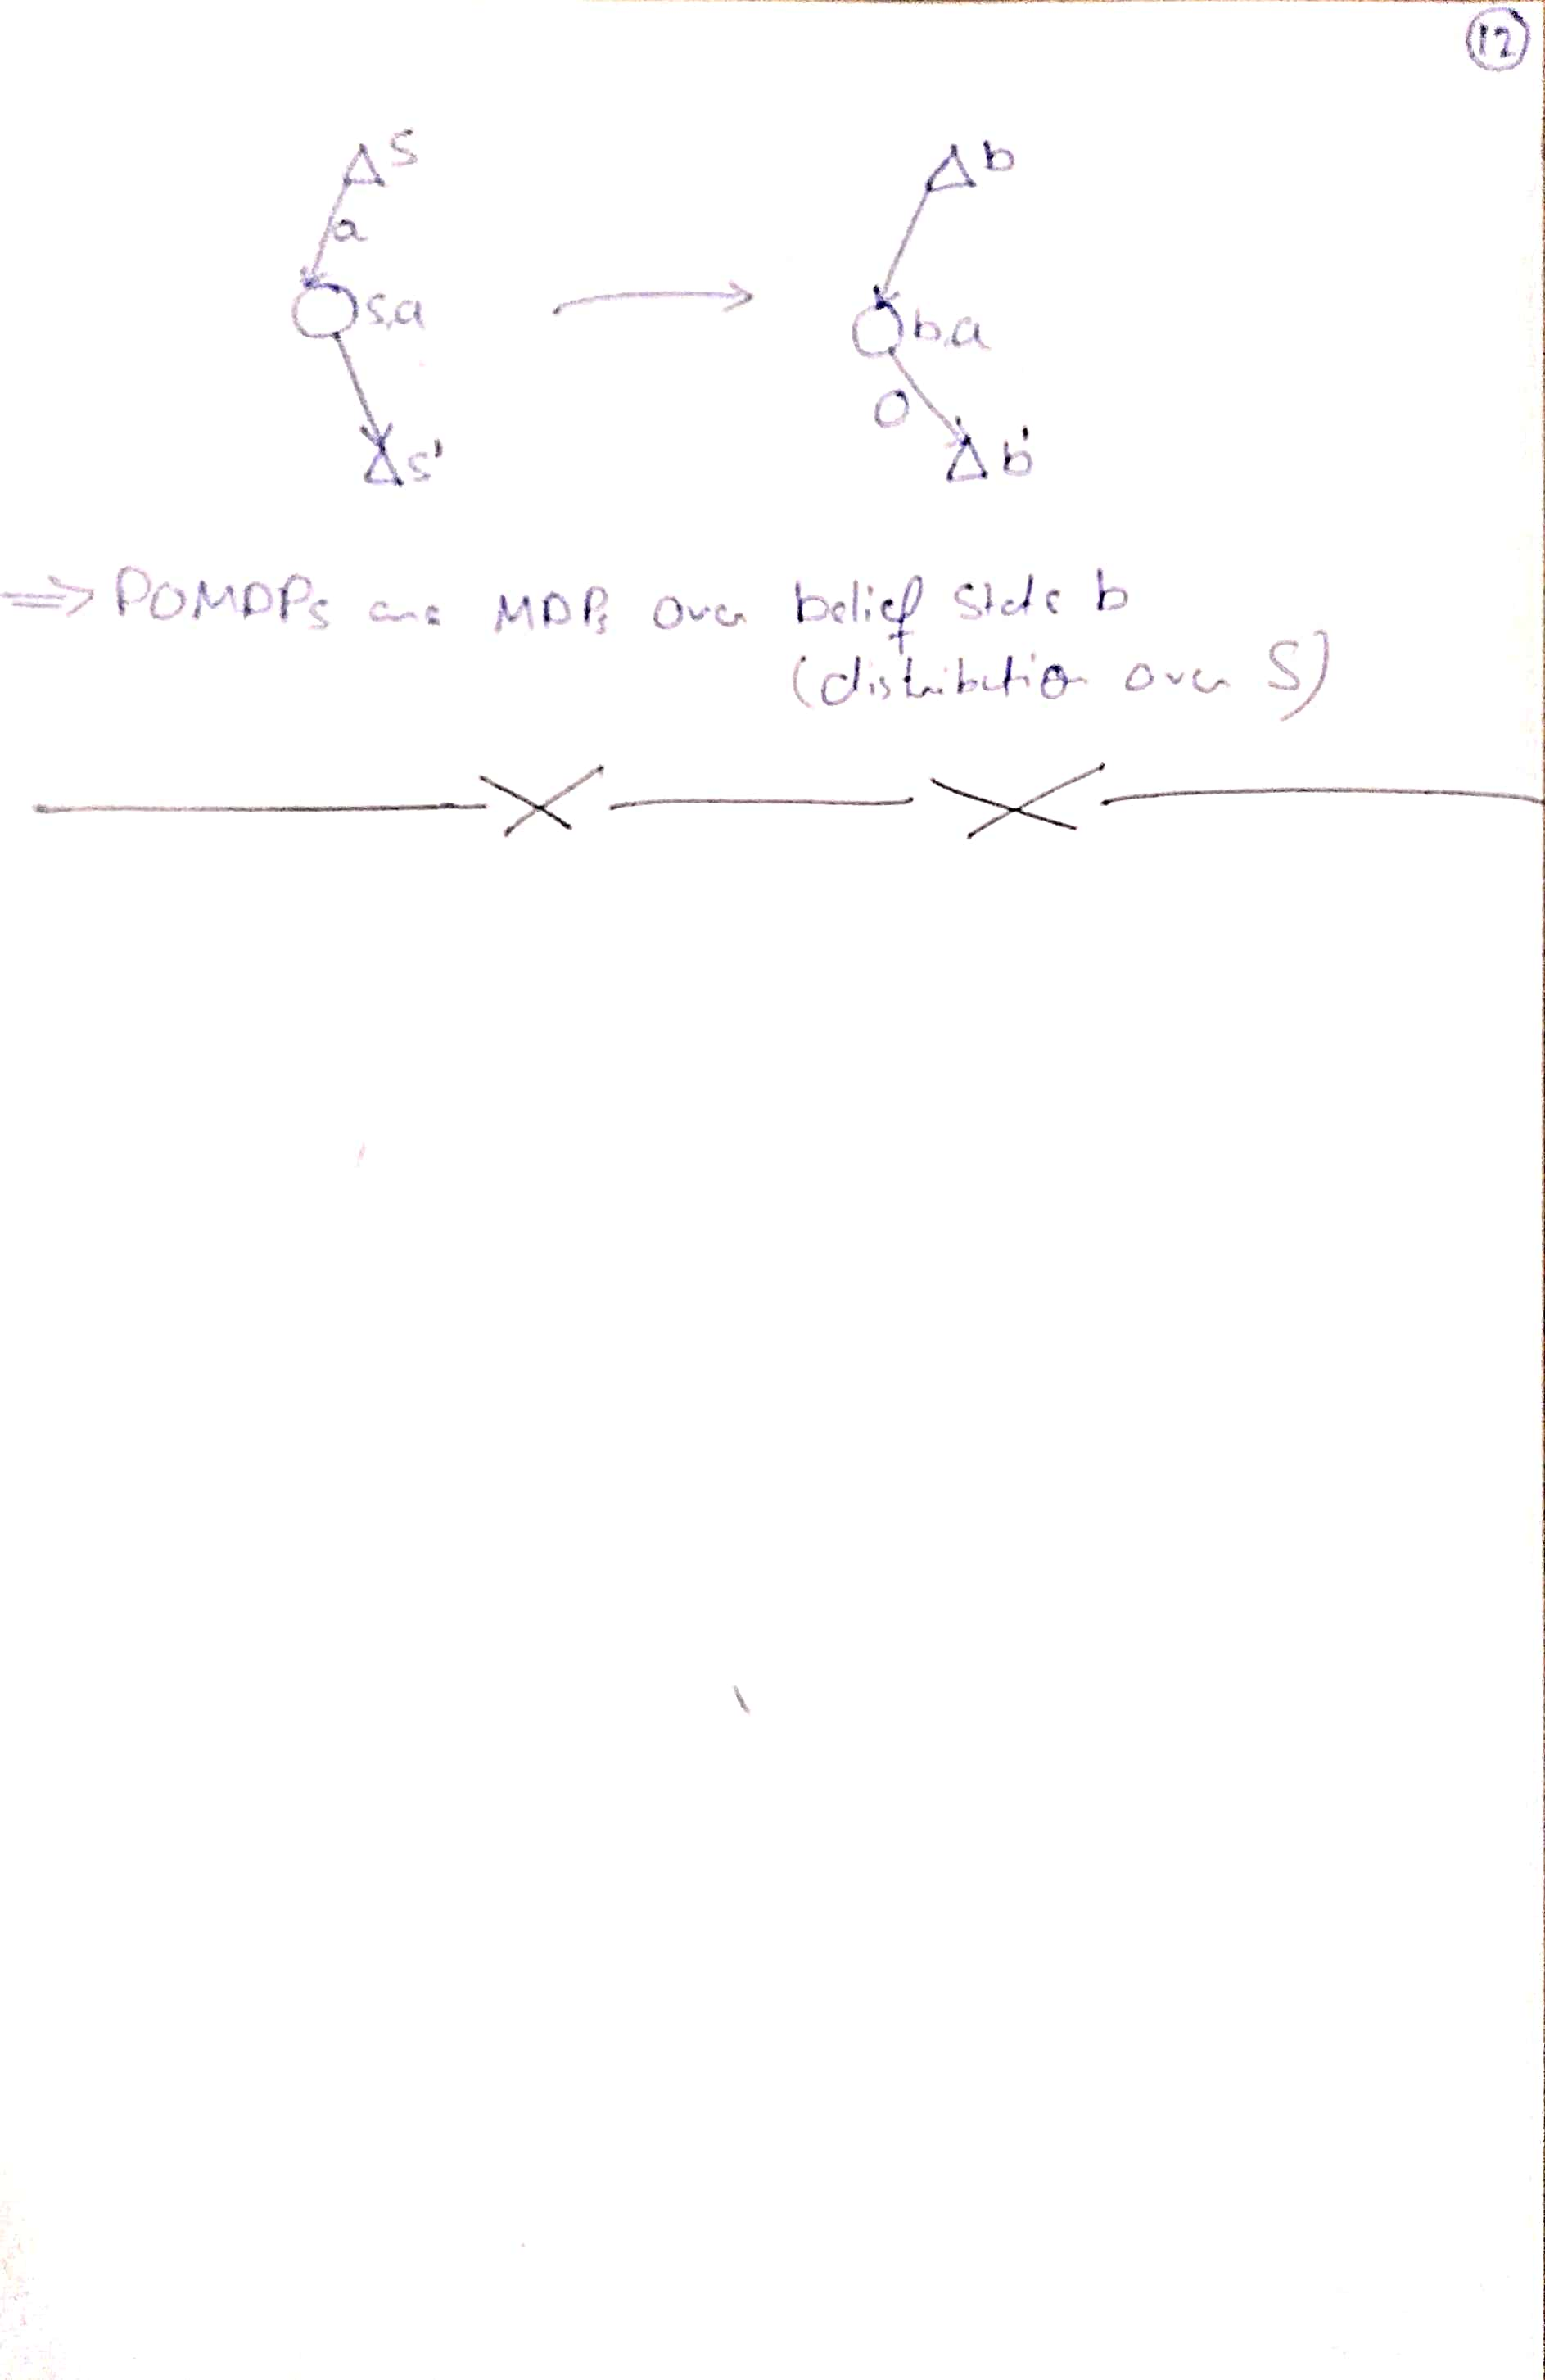 12
s
b
a
s,a
b,a
o
s'
b'
=> POMDPs are MDPs over belief state b
(distribution over S)